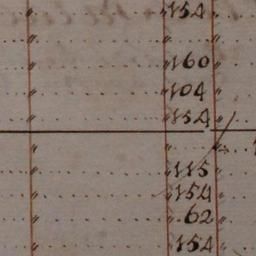 " 154 "
" " "
" 160 "
" 104 "
" 154 "
" " "
" 115 "
" 154 "
" 62 "
" 154 "